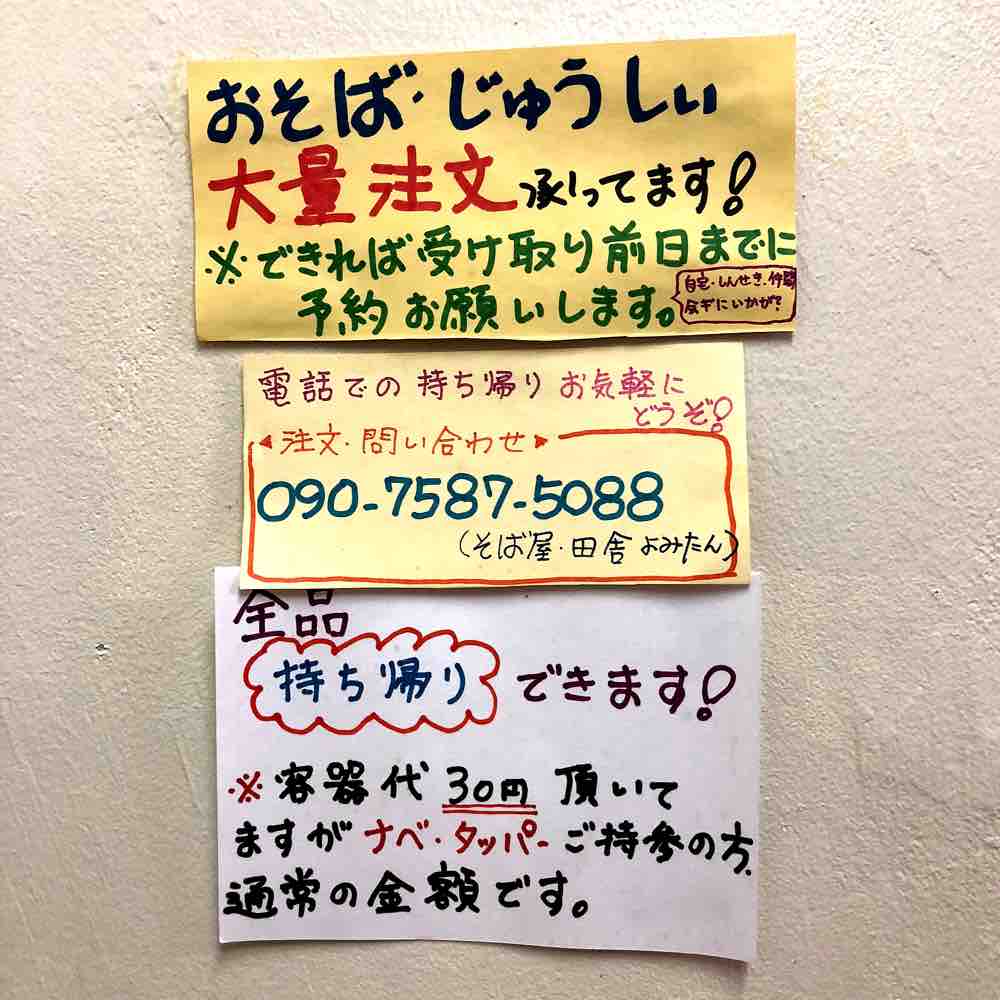 おそば・じゅうしぃ
大量注文承ってます!
※できれば受け取り前日までに
予約お願いします。
自宅・しんせき・仲間
会ギにいかが?
電話での持ち帰りお気軽に
どうぞ!
注文・問い合わせ
090-7587-5088
(そば屋・田舎よみたん)
全品
持ち帰りできます!
※容器代30円頂いて
ますがナベ・タッパーご持参の方、
通常の金額です。